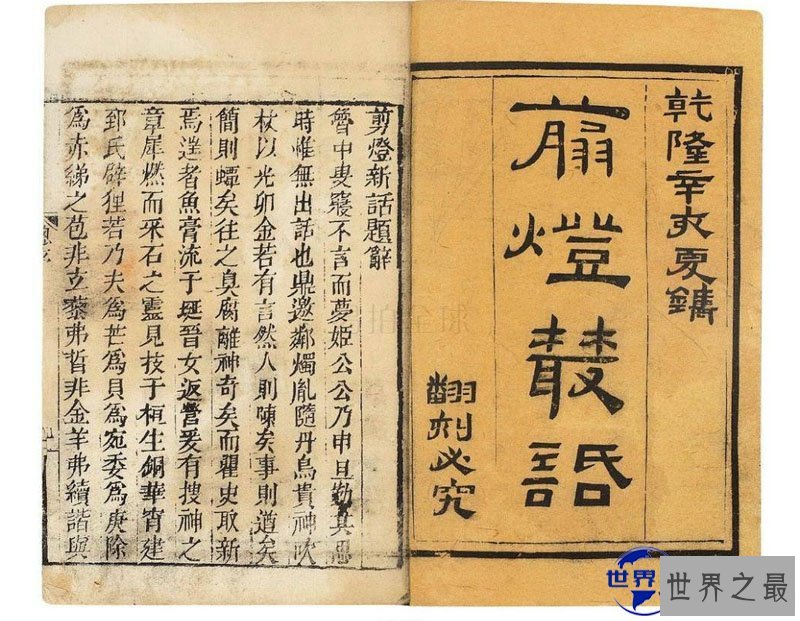 乾隆辛亥夏鐫
翦燈叢話
翻刻必究
剪燈新話題辭
魯中叟寢不言而夢姬公公乃申旦勤其思
時惟無出話也鼎邀鄰燭胤隨丹鳥貴神吹
杖以光卯金若有言然人則陳矣事則遒矣
簡則蟫矣往之臭腐離神奇矣而瞿史取新
焉遂者魚膏流于晉女返營爰有搜神之
章犀燃而采石之靈見技于桓生銅華宵建
郅氏辟狸若乃夫為芒為貝為宛委為庚除
為赤綈之苞非立藜弗晢非金羊弗續諧與
世界
世界之最